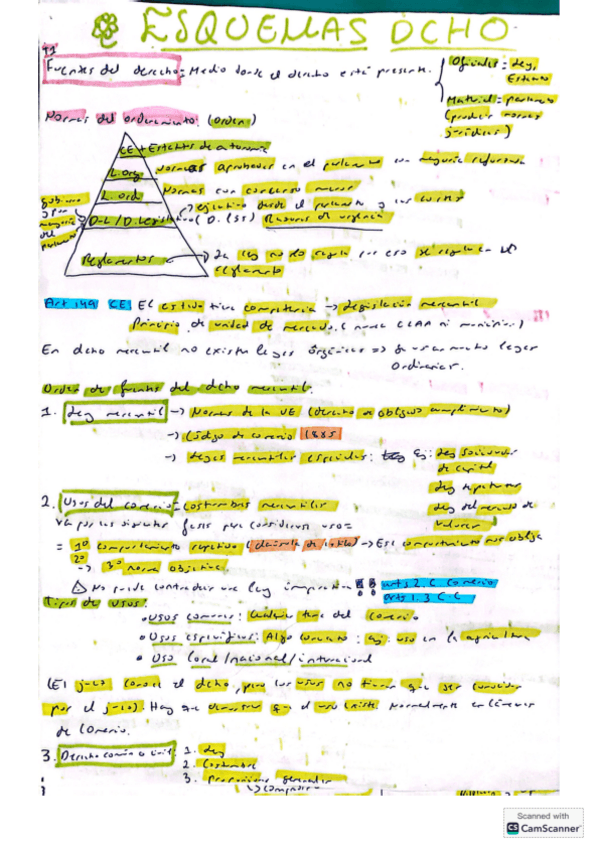 ESQUEMAS DCHO
T1
Fuentes del derecho: Medio donde el derecho está presente.
Oficiales = Ley, Estado
Material = parlamento
(producir normas
jurídicas)
Normas del ordenamiento: (orden)
CE + Estatutos de autonomía
L. org Normas aprobadas en el parlamento con mayoría reforzada
L. ord Normas con consenso menor
ejecutivo desde el parlamento y las cortes
D-L / D. Legislativo Razones de urgencia
Gobierno
mayoría
del
parlamento
Reglamentos La ley no lo regula por eso se regula en el
reglamento
Art 149 CE El estado tiene competencia → Legislación mercantil
Principio de unidad de mercado. (nunca CCAA ni municipios.)
En dcho mercantil no existen leyes orgánicas => leyes
Ordinarias.
Orden de fuentes del dcho mercantil.
1. Ley mercantil → Normas de la UE (derecho de obligado cumplimiento)
→ Código de comercio 1885
→ Leyes mercantiles especiales: Ej: Ley sociedades
de capital
Ley
Ley del mercado de
valores
2. Usos del comercio = costumbres mercantiles
por las siguientes fases para considerarse uso=
= 1º comportamiento repetitivo → Ese comportamiento nos obliga
2º
→ 3º norma objetiva
No puede contradecir una ley imperativa art 2. C Comercio
art 1.3 C.C
Tipos de usos:
• Usos comunes: Cualquier tema del comercio
• Usos específicos: Algo concreto: ej: uso en la agricultura
• Uso local/nacional/internacional
(El juez conoce el dcho, pero los usos no tienen que ser conocidos
por el juez). Hay que demostrar que el uso existe. Normalmente en Cámaras
de Comercio.
3. Derecho común o civil: 1. Ley
2. Costumbre
3. generales